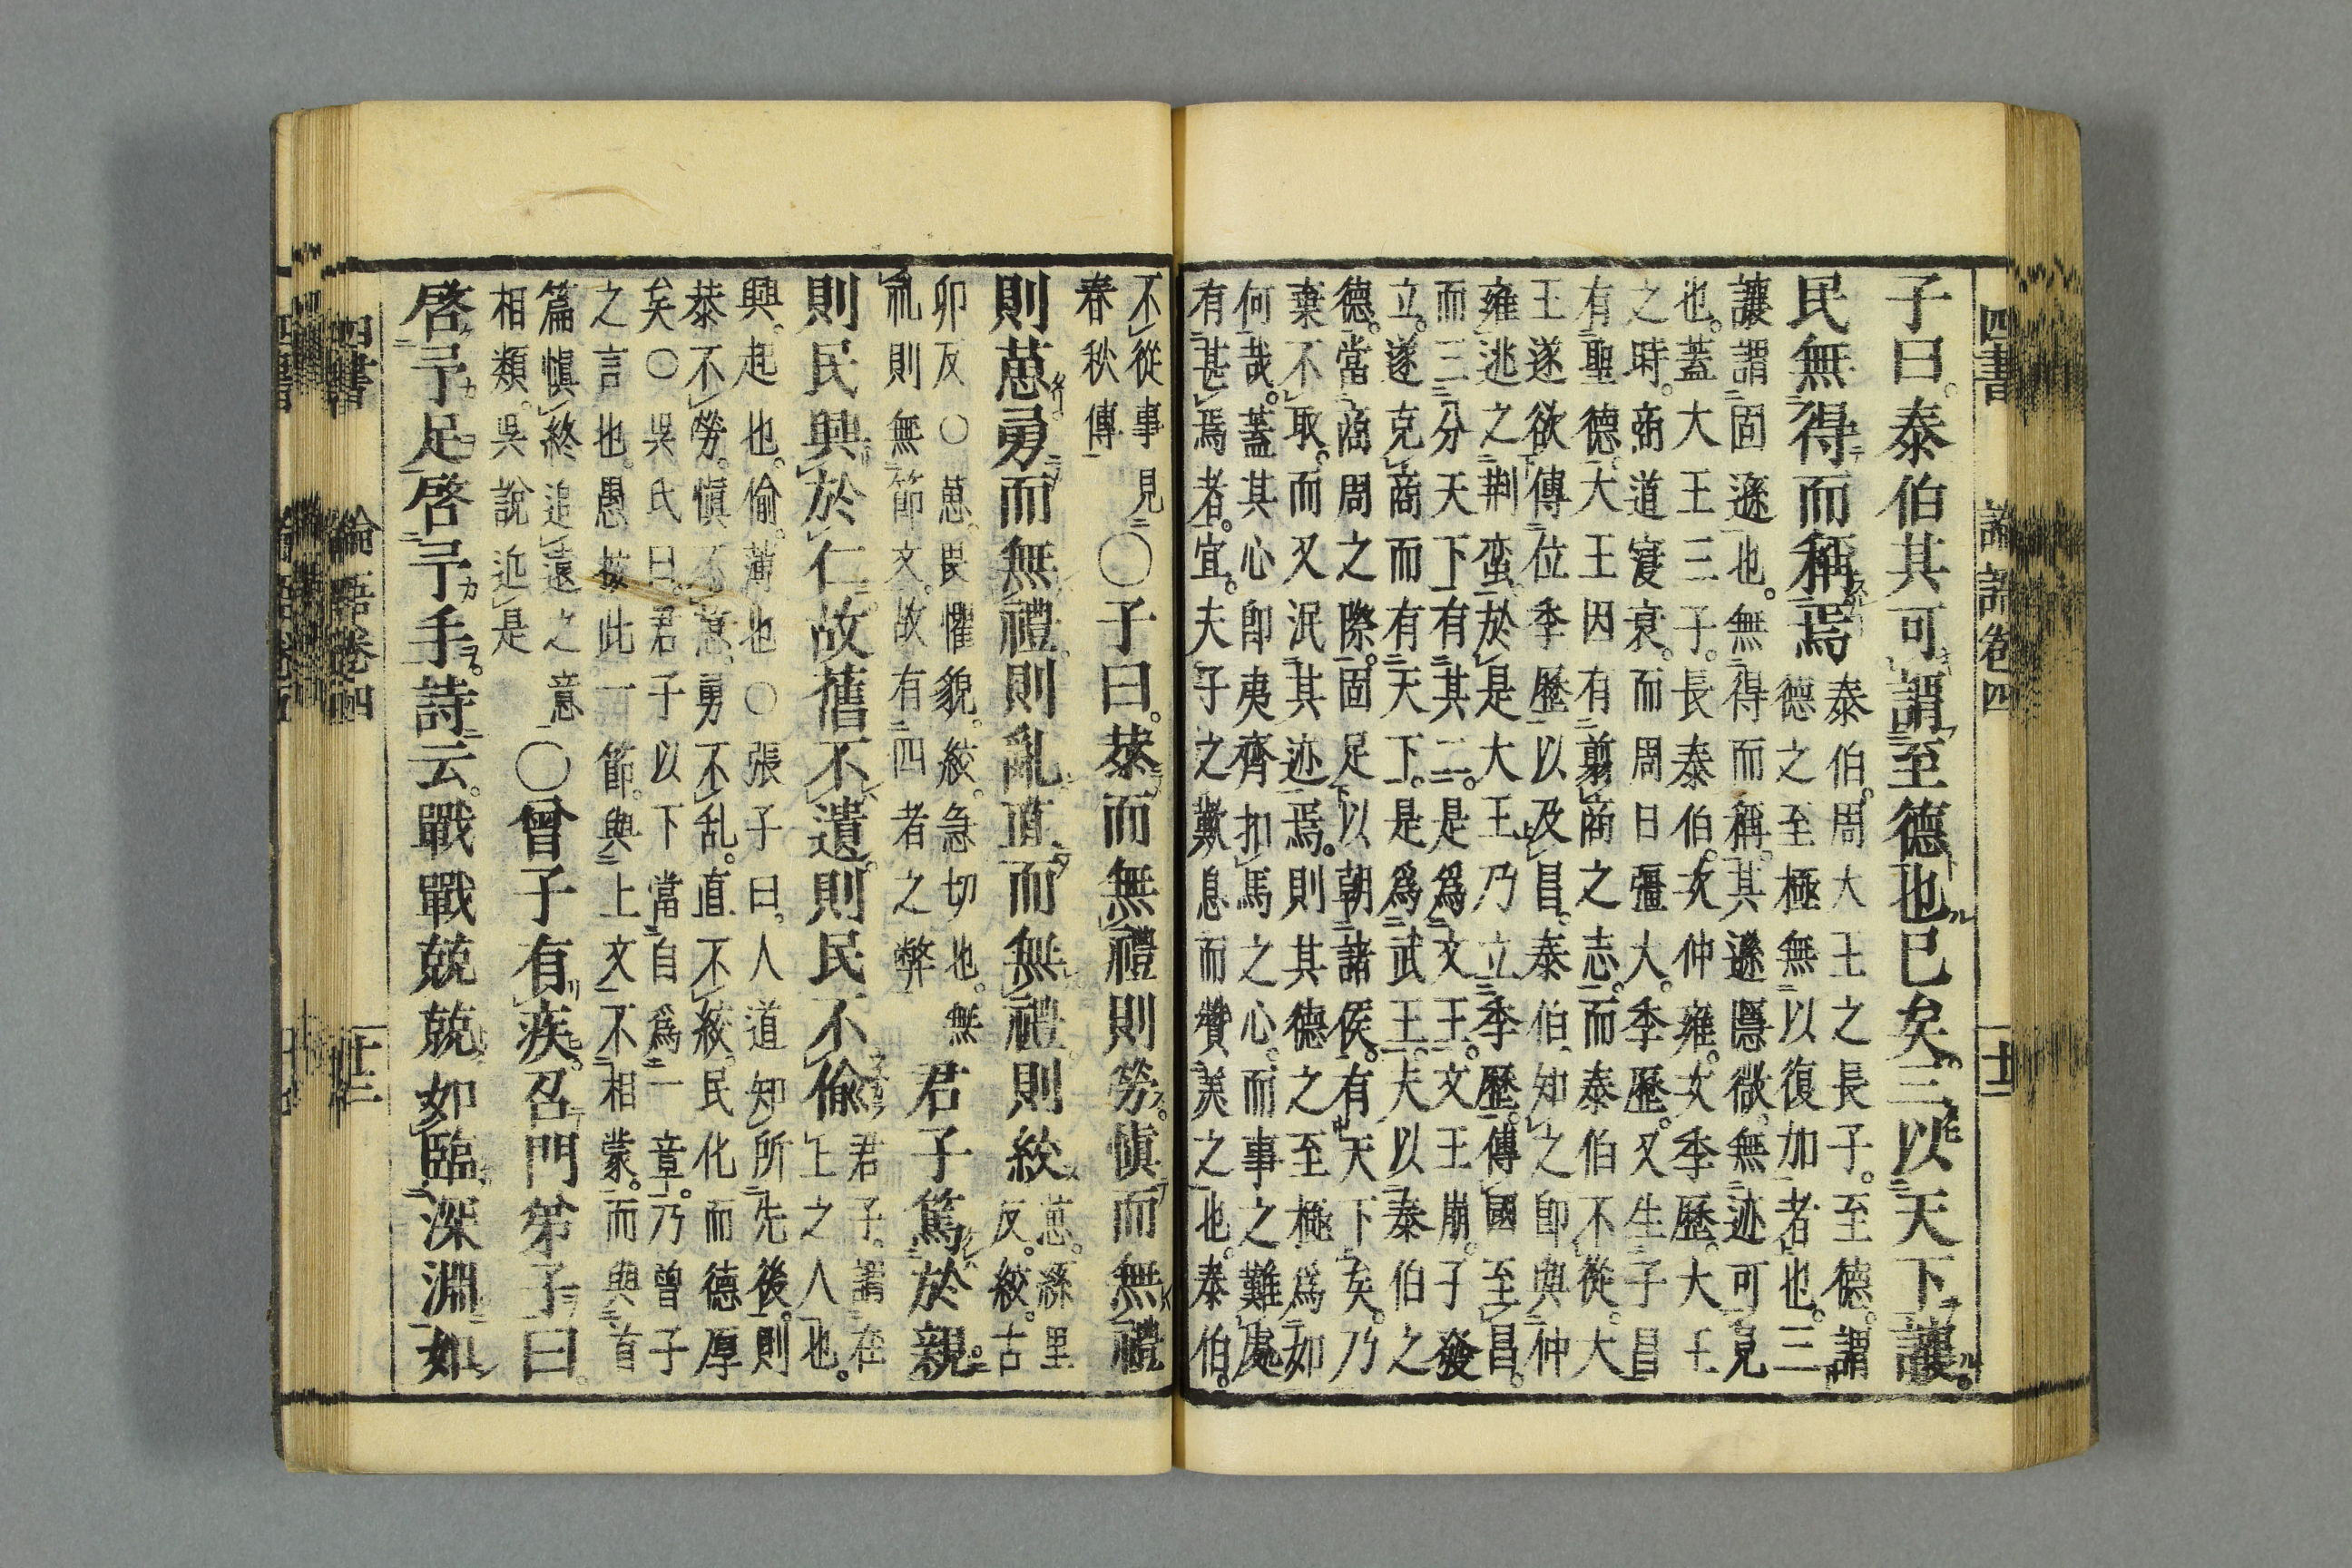 四書 論語卷四 十二
子曰。泰伯其可謂至德也已矣。三以天下讓。
民無得而稱焉
泰伯。周大王之長子。至德。謂
德之至極無以復加者也。三
讓謂固遜也。無得而稱。其遜隱微。無迹可見
也。蓋大王三子。長泰伯。次仲雍。次季歷。大王
之時。商道寖衰。而周日彊大。季歷。又生子昌
有聖德。大王因有翦商之志。而泰伯不從。大
王遂欲傳位季歷以及昌。泰伯知之即與仲
雍逃之荆蛮於是大王乃立季歷。傳國至昌。
而三分天下有其二。是爲文王。文王崩。子發
立。遂克商而有天下。是爲武王。夫以泰伯之
德。當商周之際。固足以朝諸侯。有天下矣。乃
棄不取。而又泯其迹焉。則其德之至極爲如
何哉。蓋其心即夷齊扣馬之心。而事之難處
有甚焉者。宜。夫子之歎息而贊美之也。泰伯。
不從事見
春秋傳
○子曰。恭而無禮則勞。慎而無禮
則葸勇而無禮則亂直而無禮則絞
葸。絲里
反。絞。古
卯反○葸。畏懼貌。絞。急切也。無
礼則無節文。故有四者之弊
君子篤於親。
則民興於仁。故舊不遺。則民不偷
君子。謂在
上之人也。
興。起也。偷。薄也○張子曰。人道知所先後。則
恭不勞。慎不葸。勇不乱。直不絞。民化而德厚
矣○吳氏曰。君子以下當自爲一章。乃曾子
之言也。愚按此一節。與上文不相蒙。而與首
篇慎終追遠之意
相類。吳說近是
○曾子有疾。召門弟子曰。
啓予足啓予手。詩云。戰戰兢兢如臨深淵如
四書 論語卷四 十二